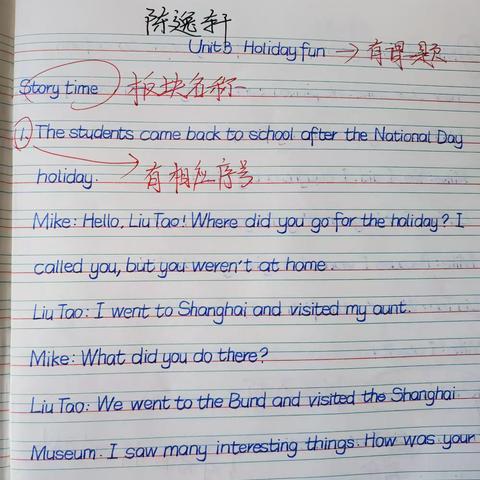 陈逸轩
Unit3 Holiday fun → 有课题
Story time 板块名称
1. The students came back to school after the National Day
holiday. 有相应序号
Mike: Hello, Liu Tao! Where did you go for the holiday? I
called you, but you weren't at home.
Liu Tao: I went to Shanghai and visited my aunt.
Mike: What did you do there?
Liu Tao: We went to the Bund and visited the Shanghai
Museum. I saw many interesting things. How was your